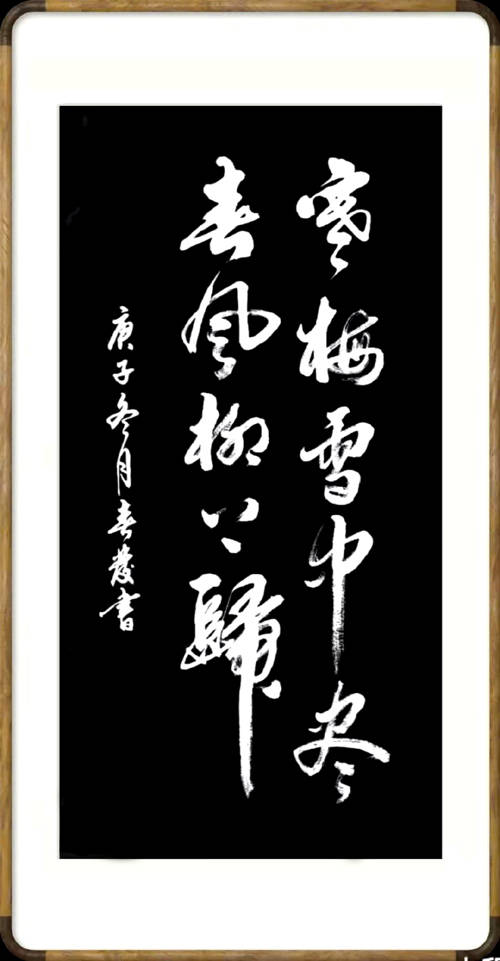 寒梅雪中尽
春風柳上歸
庚子冬月春發書